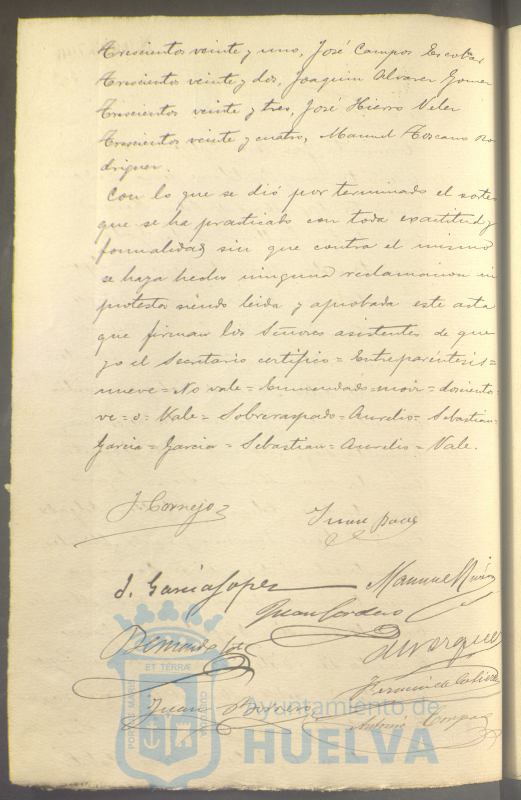 Trescientos veinte y uno, José Campos Escobar
Trescientos veinte y dos, Joaquin Alvarez Gomez
Trescientos veinte y tres, José Hierro Velez
Trescientos veinte y cuatro, Manuel Toscano Ro
driguez.
Con lo que se dió por terminado el sorteo
que se ha practicado con toda exactitud y
formalidad, sin que contra el mismo
se haya hecho ninguna reclamacion ni
protesta siendo leida y aprobada este acta
que firman los Señores asistentes de que
yo el Secretario certifico = Entreparéntesis =
nueve = No vale = Enmendado = = doscientos
ve = o = Vale = Sobreraspado = Aurelio = Sebastian =
Garcia = Garcia = Sebastian = Aurelio = Vale.
J. Cornejo
Juan
J. Garcia Lopez
Manuel
Juan Cordero
Bernardo
A Vazquez
Juan Borrero
Antonio
PORTUS MARIS
ET TERRÆ
CUSTODIA
Ayuntamiento de
HUELVA